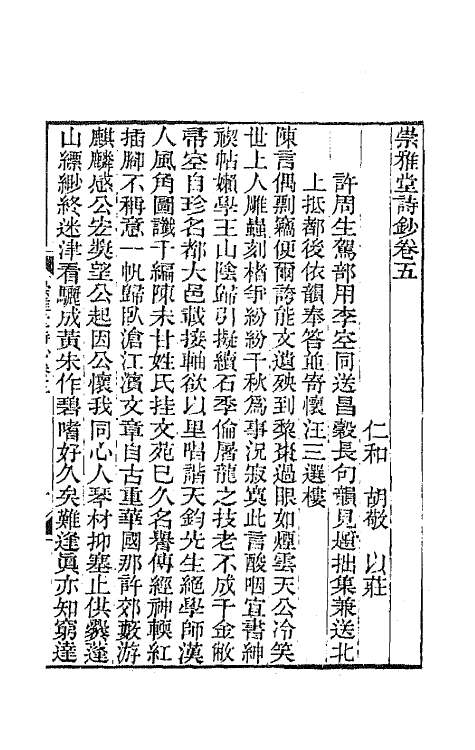 崇雅堂詩鈔卷五
仁和　胡敬　以莊
許周生駕部用李空同送昌穀長句韻見題拙集兼送北
上抵都後依韻奉答並寄懷汪三選樓
陳言偶剽竊便爾誇能文遺殃到黎棗過眼如煙雲天公冷笑
世上人雕蟲刻楮爭紛紛千秋爲事況寂寞此言酸咽宜書紳
禊帖嬾學王山陰歸引擬續石季倫屠龍之技老不成千金敝
帚空自珍名都大邑載接軸欲以里唱諧天鈞先生絕學師漢
人風角圖讖千編陳未甘姓氏挂文苑巳久名譽傳經神輭紅
插脚不稱意一帆歸臥滄江濱文章自古重華國那許郊藪游
麒麟感公
望公起因公懷我同心人琴材抑塞止供爨蓬
山縹緲終迷津看驪成黃朱作碧嗜好久矣難逢眞亦知窮達